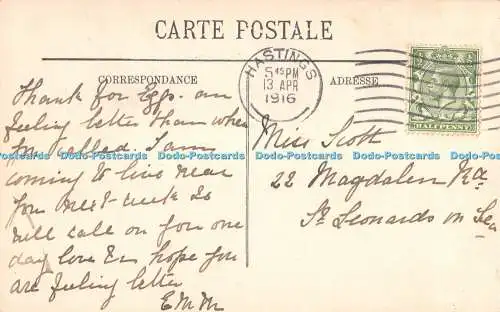 CARTE POSTALE
CORRESPONDANCE
ADRESSE
HASTINGS
5 45 PM
13 APR
1916
HALFPENNY
Thank for Eggs. am
feeling better than when
you called. I am
coming to live near
you next week so
will call on you one
day love & hope you
are feeling better
E M M
Miss Scott
22 Magdalen Rd
St Leonards on Sea
Dodo-Postcards Dodo-Postcards Dodo-Postcards Dodo-Postcards Dodo-Postcards Dodo-Postcards